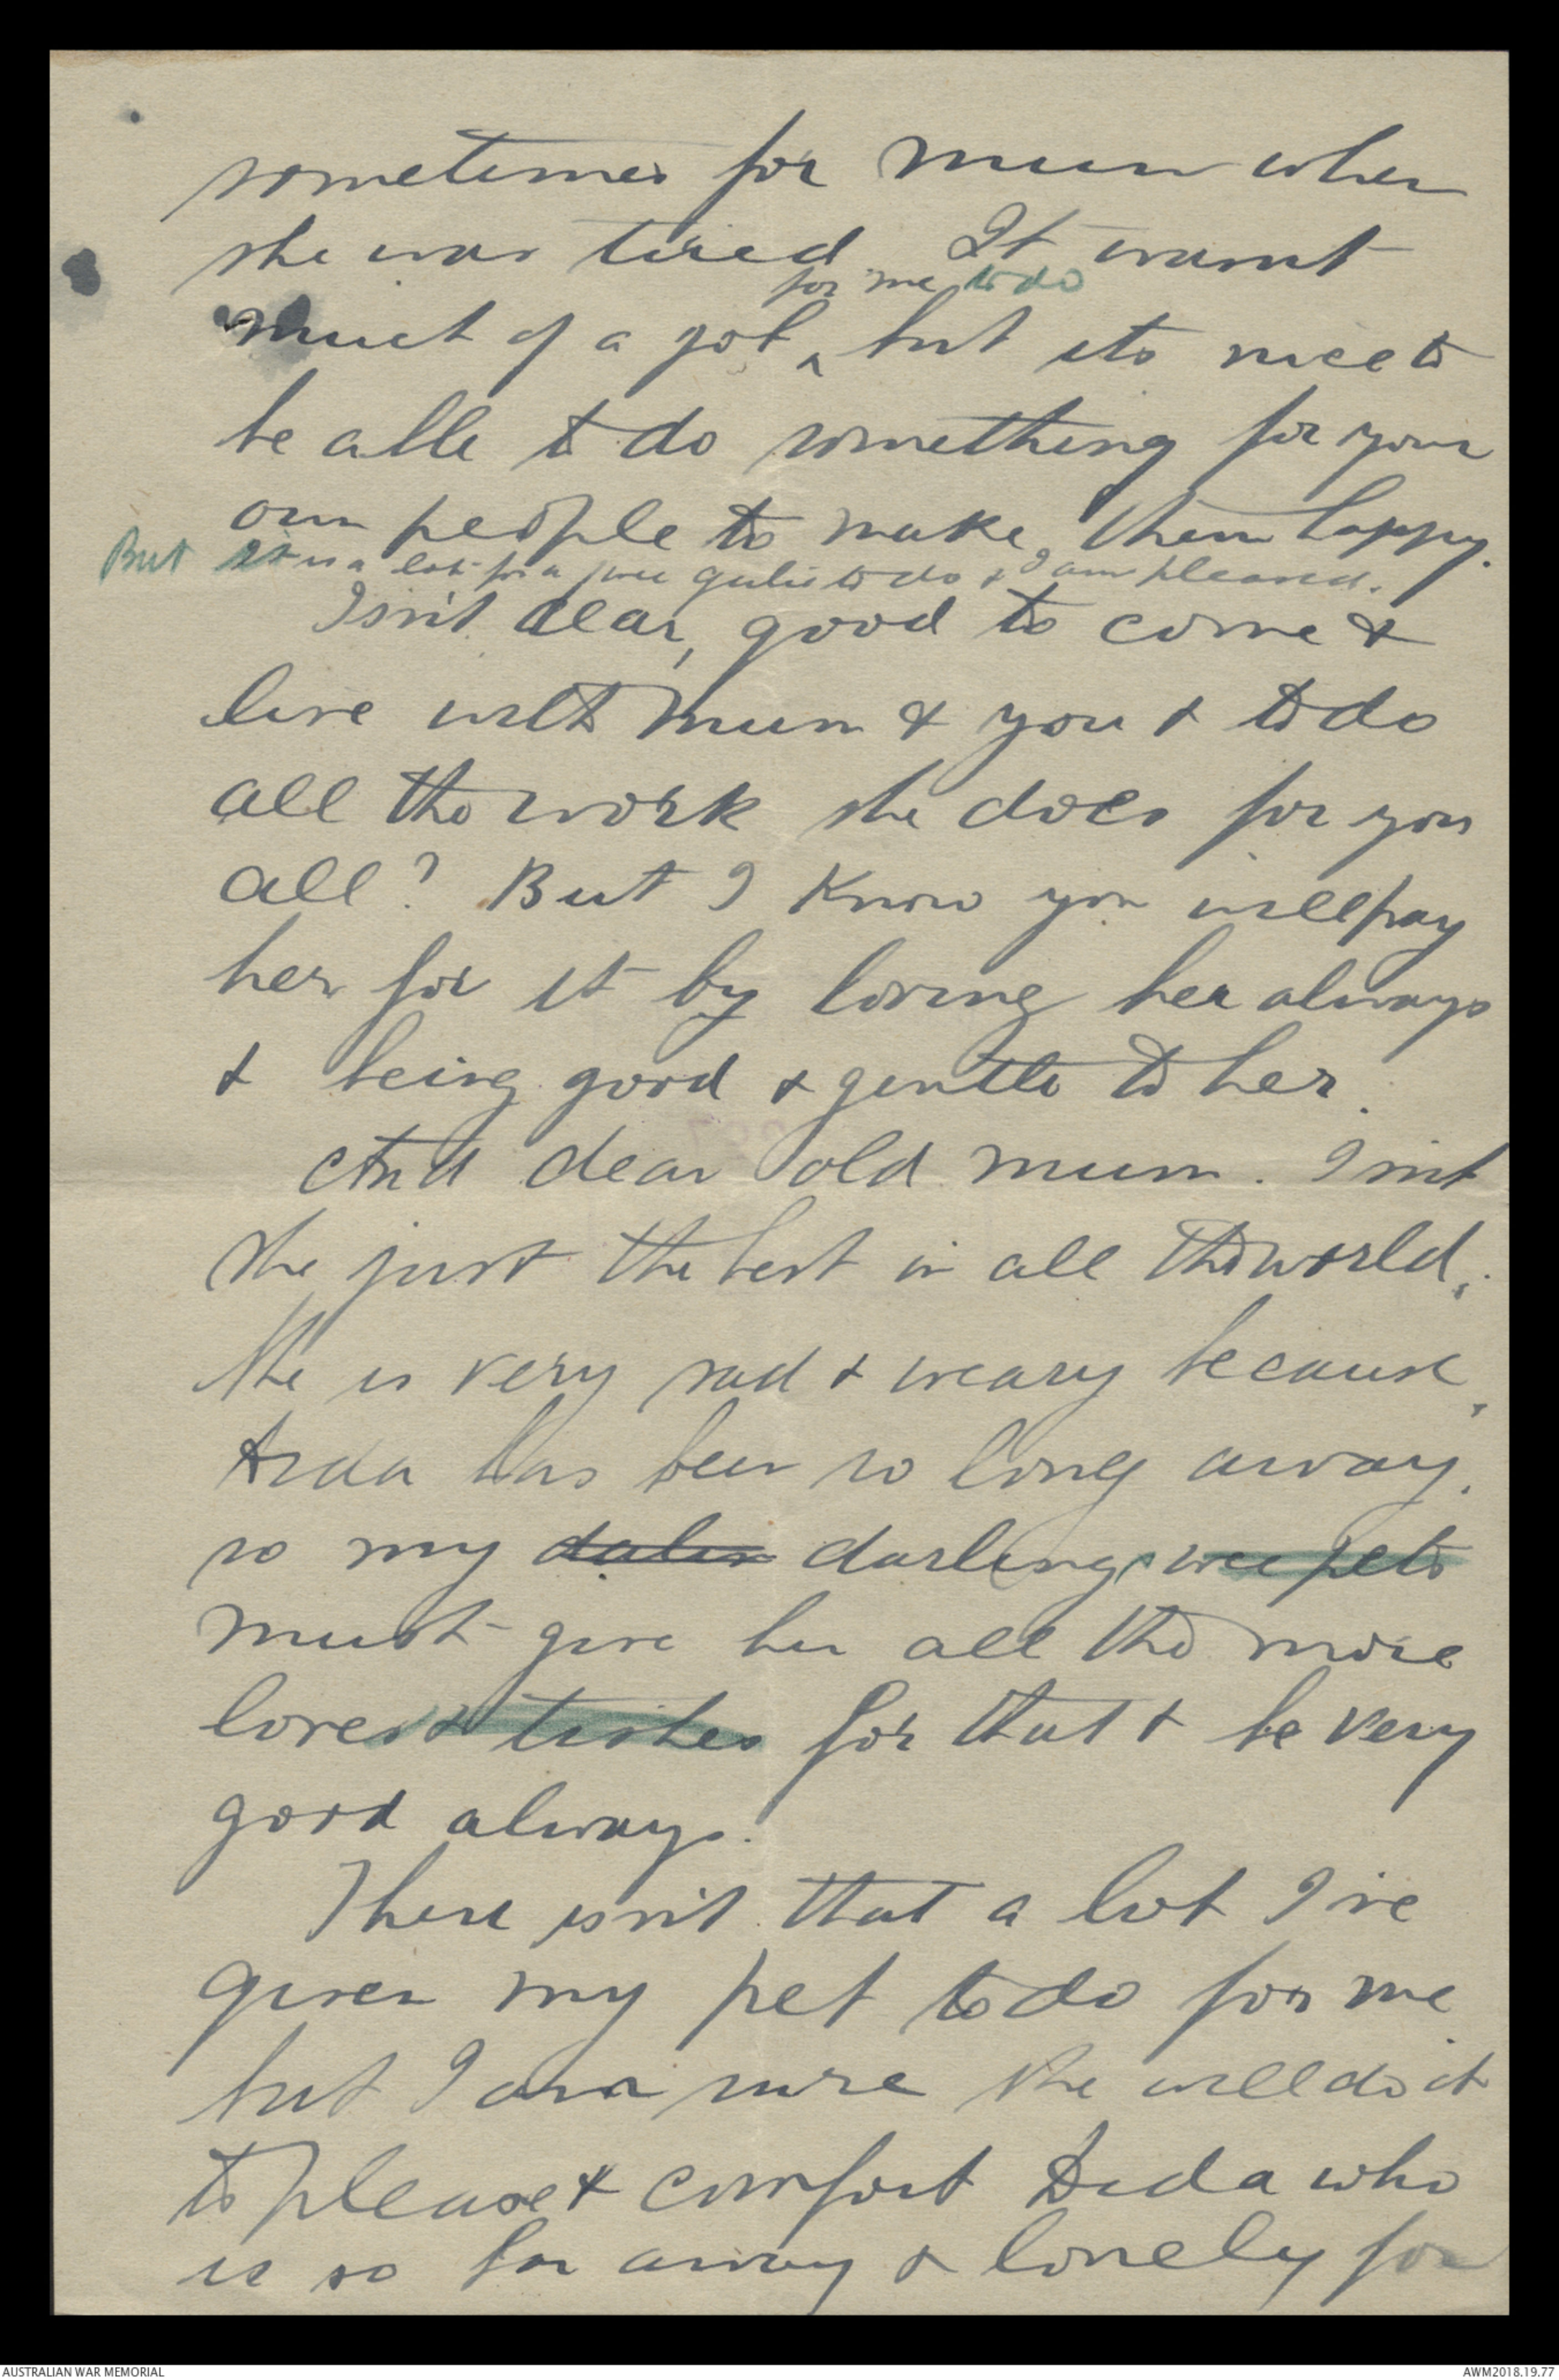 sometimes for mum when
she was tired. It wasnt
for me to do
much of a job, but its nice to
be able to do something for your
own people to make them happy.
But it is a lot for a wee girlie to do & I am pleased.
Isn't dear, good to come &
live with Mum & you & to do
all the work she does for you
all? But I know you will pay
her for it by loving her always
& being good & gentle to her.
And dear old mum. Isnt
she just the best in all the world.
She is very sad & weary because
Dida has been so long away.
so my darling wee pets
must give her all the more
loves & tishes for that & be very
good always.
There isn't that a lot I've
given my pet to do for me
but I am sure she will do it
to please & comfort Dida who
is so far away & lonely for
AUSTRALIAN WAR MEMORIAL
AWM2018.19.77